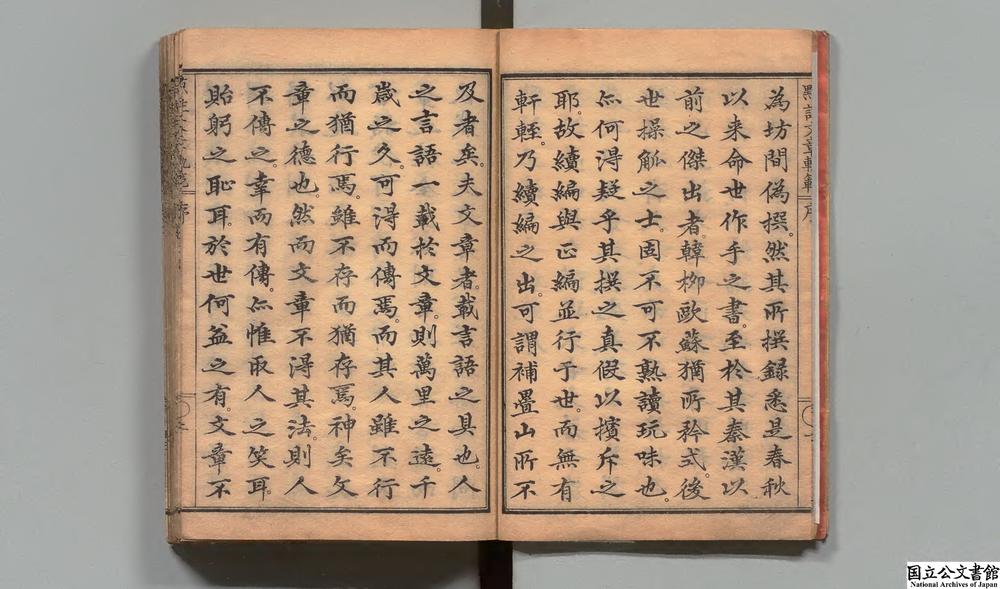 為坊間偽撰。然其所撰録悉是春秋
以来命世作手之書。至於其秦漢以
前之傑出者、韓柳歐蘇猶所矜式。後
世操觚之士。固不可不熟讀玩味也。
亦何得疑乎其撰之真假以擯斥之
耶。故續編與正編並行于世。而無有
軒輊。乃續編之出。可謂補疊山所不
及者矣。夫文章者。載言語之具也。人
之言語一載於文章。則萬里之遠。千
歳之久。可得而傳焉。而其人雖不行
而猶行焉。雖不存而猶存焉。神矣文
章之德也。然而文章不得其法。則人
不傳之。幸而有傳。亦惟取人之笑耳。
貽躬之恥耳。於世何益之有。文章不
點註文章軌範
序
序
国立公文書館
National Archives of Japan